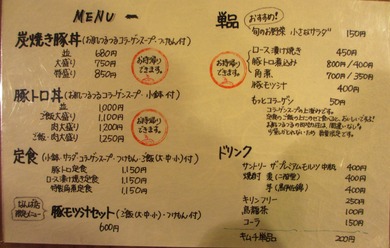 MENU
炭焼き豚丼 (お肌つるつるコラーゲンスープ・つけもん付)
並 680円
大盛り 750円
特盛り 850円
お持帰りできます。
豚トロ丼 (お肌つるつるコラーゲンスープ・小鉢付)
並 1,000円
ご飯大盛り 1,100円
肉大盛り 1,200円
ご飯・肉大盛り 1,250円
お持帰りできます。
定食 (小鉢・サラダ・コラーゲンスープ・つけもん・ご飯(大中小)付)
豚トロ定食 1,150円
ロース漬け焼き定食 1,150円
特製角煮定食 1,150円
限定メニュー
豚モツ汁セット (ご飯(大中小)・つけもん付)
600円
単品
おすすめ!
旬のお野菜 小さなサラダ 150円
お持帰りできます。
ロース漬け焼き 450円
豚トロ煮込み 800円/400円
角煮 700円/350円
豚モツ汁 400円
もっとコラーゲン 50円
ドリンク
サントリー ザ・プレミアムモルツ 中瓶 400円
焼酎 麦 400円
芋 400円
キリンフリー 250円
烏龍茶 100円
コーラ 150円
キムチ単品 200円